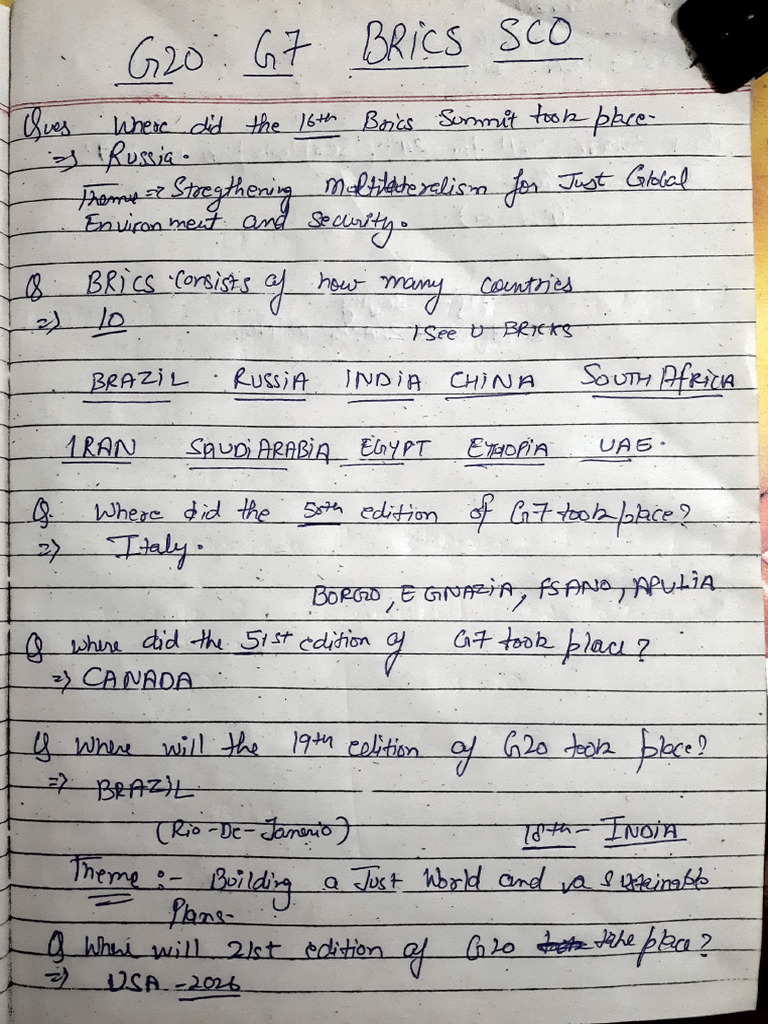 G20 G7 BRICS SCO
Ques Where did the 16th Brics Summit took place-
=> Russia.
Theme => Stregthening Multilateralism for Just Global
Environment and security.
Q BRICS consists of how many countries
=> 10
I See U BRICKS
BRAZIL RUSSIA INDIA CHINA SOUTH AfRICA
IRAN SAUDI ARABIA EGYPT ETHOPIA UAE.
Q. Where did the 50th edition of G7 took place?
=> Italy.
BORGO, EGNAZIA, FSANO, APULIA
Q where did the 51st edition of G7 took place?
=> CANADA
Q Where will the 19th edition of G20 took place?
=> BRAZIL
(Rio-De-Janerio) 18th - INDIA
Theme :- Building a Just World and a Sustainable
Plans-
Q Where will 21st edition of G20 take place?
=> USA - 2026